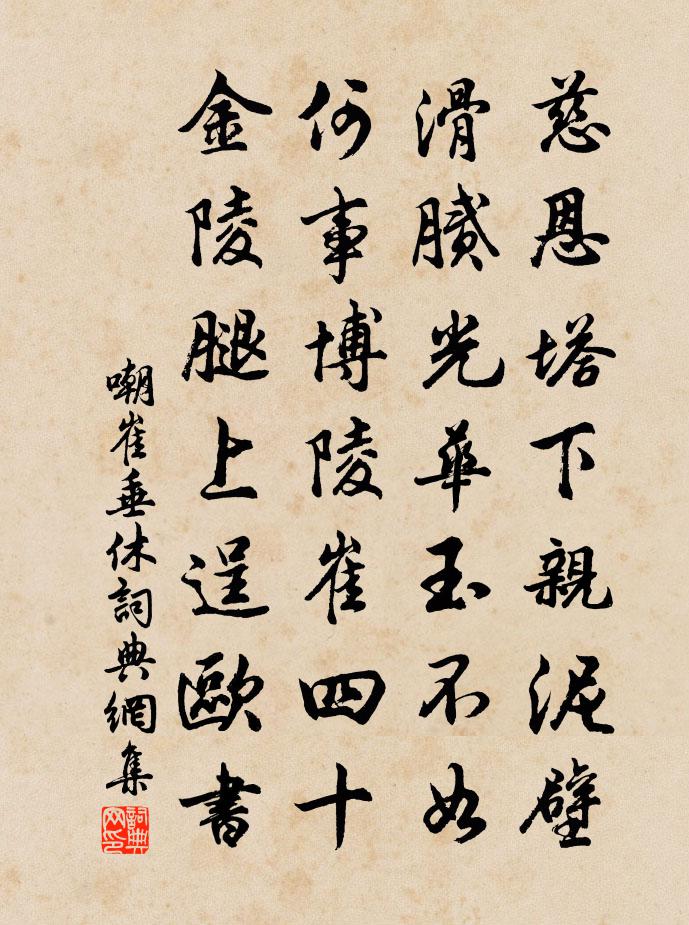 慈恩塔下親泥壁
滑膩光華玉不如
何事博陵崔四十
金陵腿上逞歐書
嘲崔垂休詞典網集
詞典网印